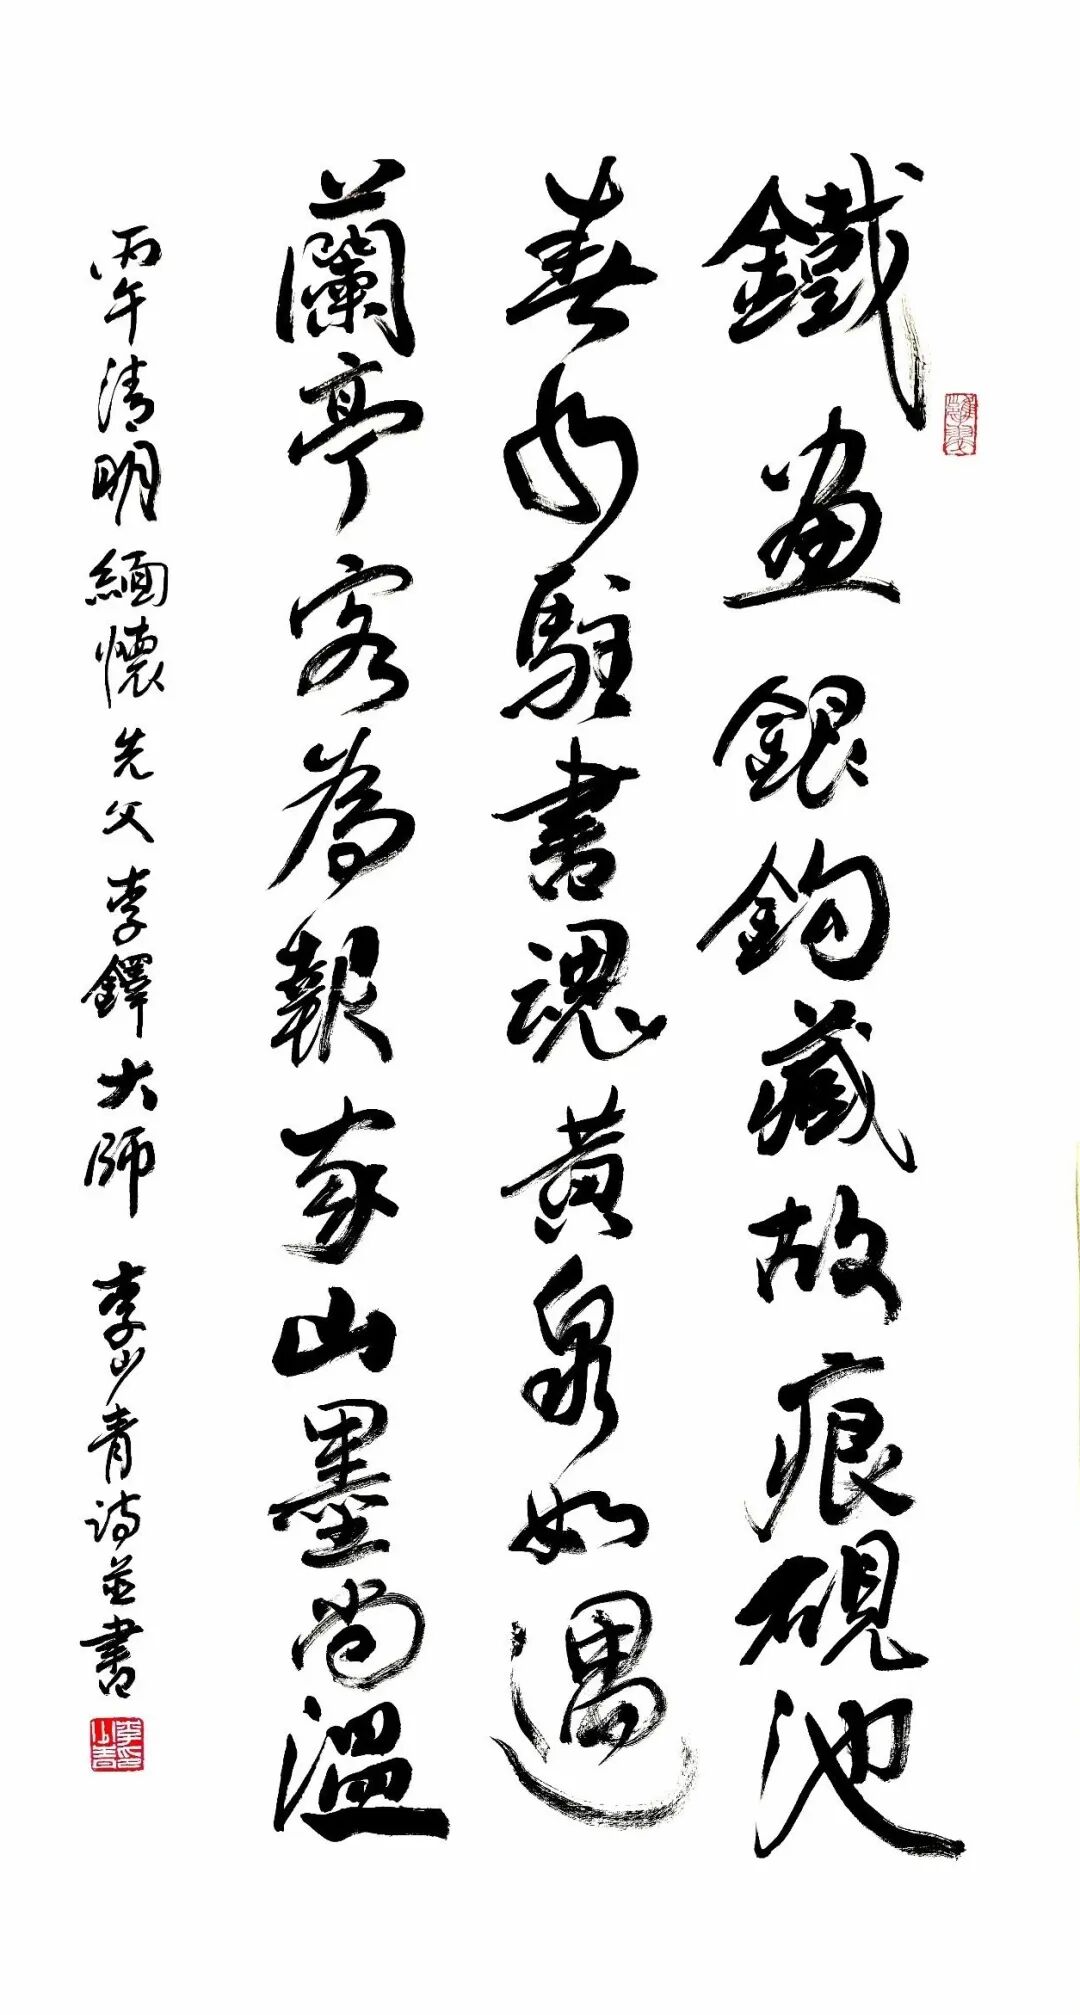 鐵畫銀鈎藏故痕硯池
春駐書魂黃泉如遇
蘭亭客為報家山墨尚溫
丙午清明緬懷先父李鐸大師 李山青詩並書